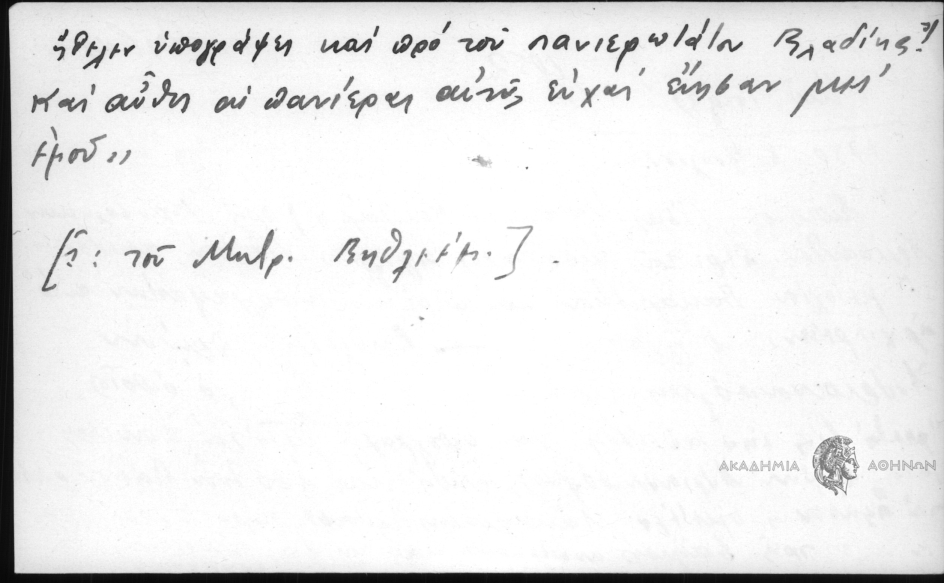 ἤθελεν ὑπογράψει καὶ πρὸ τοῦ πανιερωτάτου Βλαδίκα
καὶ αὖθις αἱ πανίεραι αὐτῆς εὐχαὶ εἴησαν μετ'
ἐμοῦ»
[: τοῦ Μητρ. Βηθλεέμ.].
ΑΚΑΔΗΜΙΑ ΑΘΗΝΩΝ